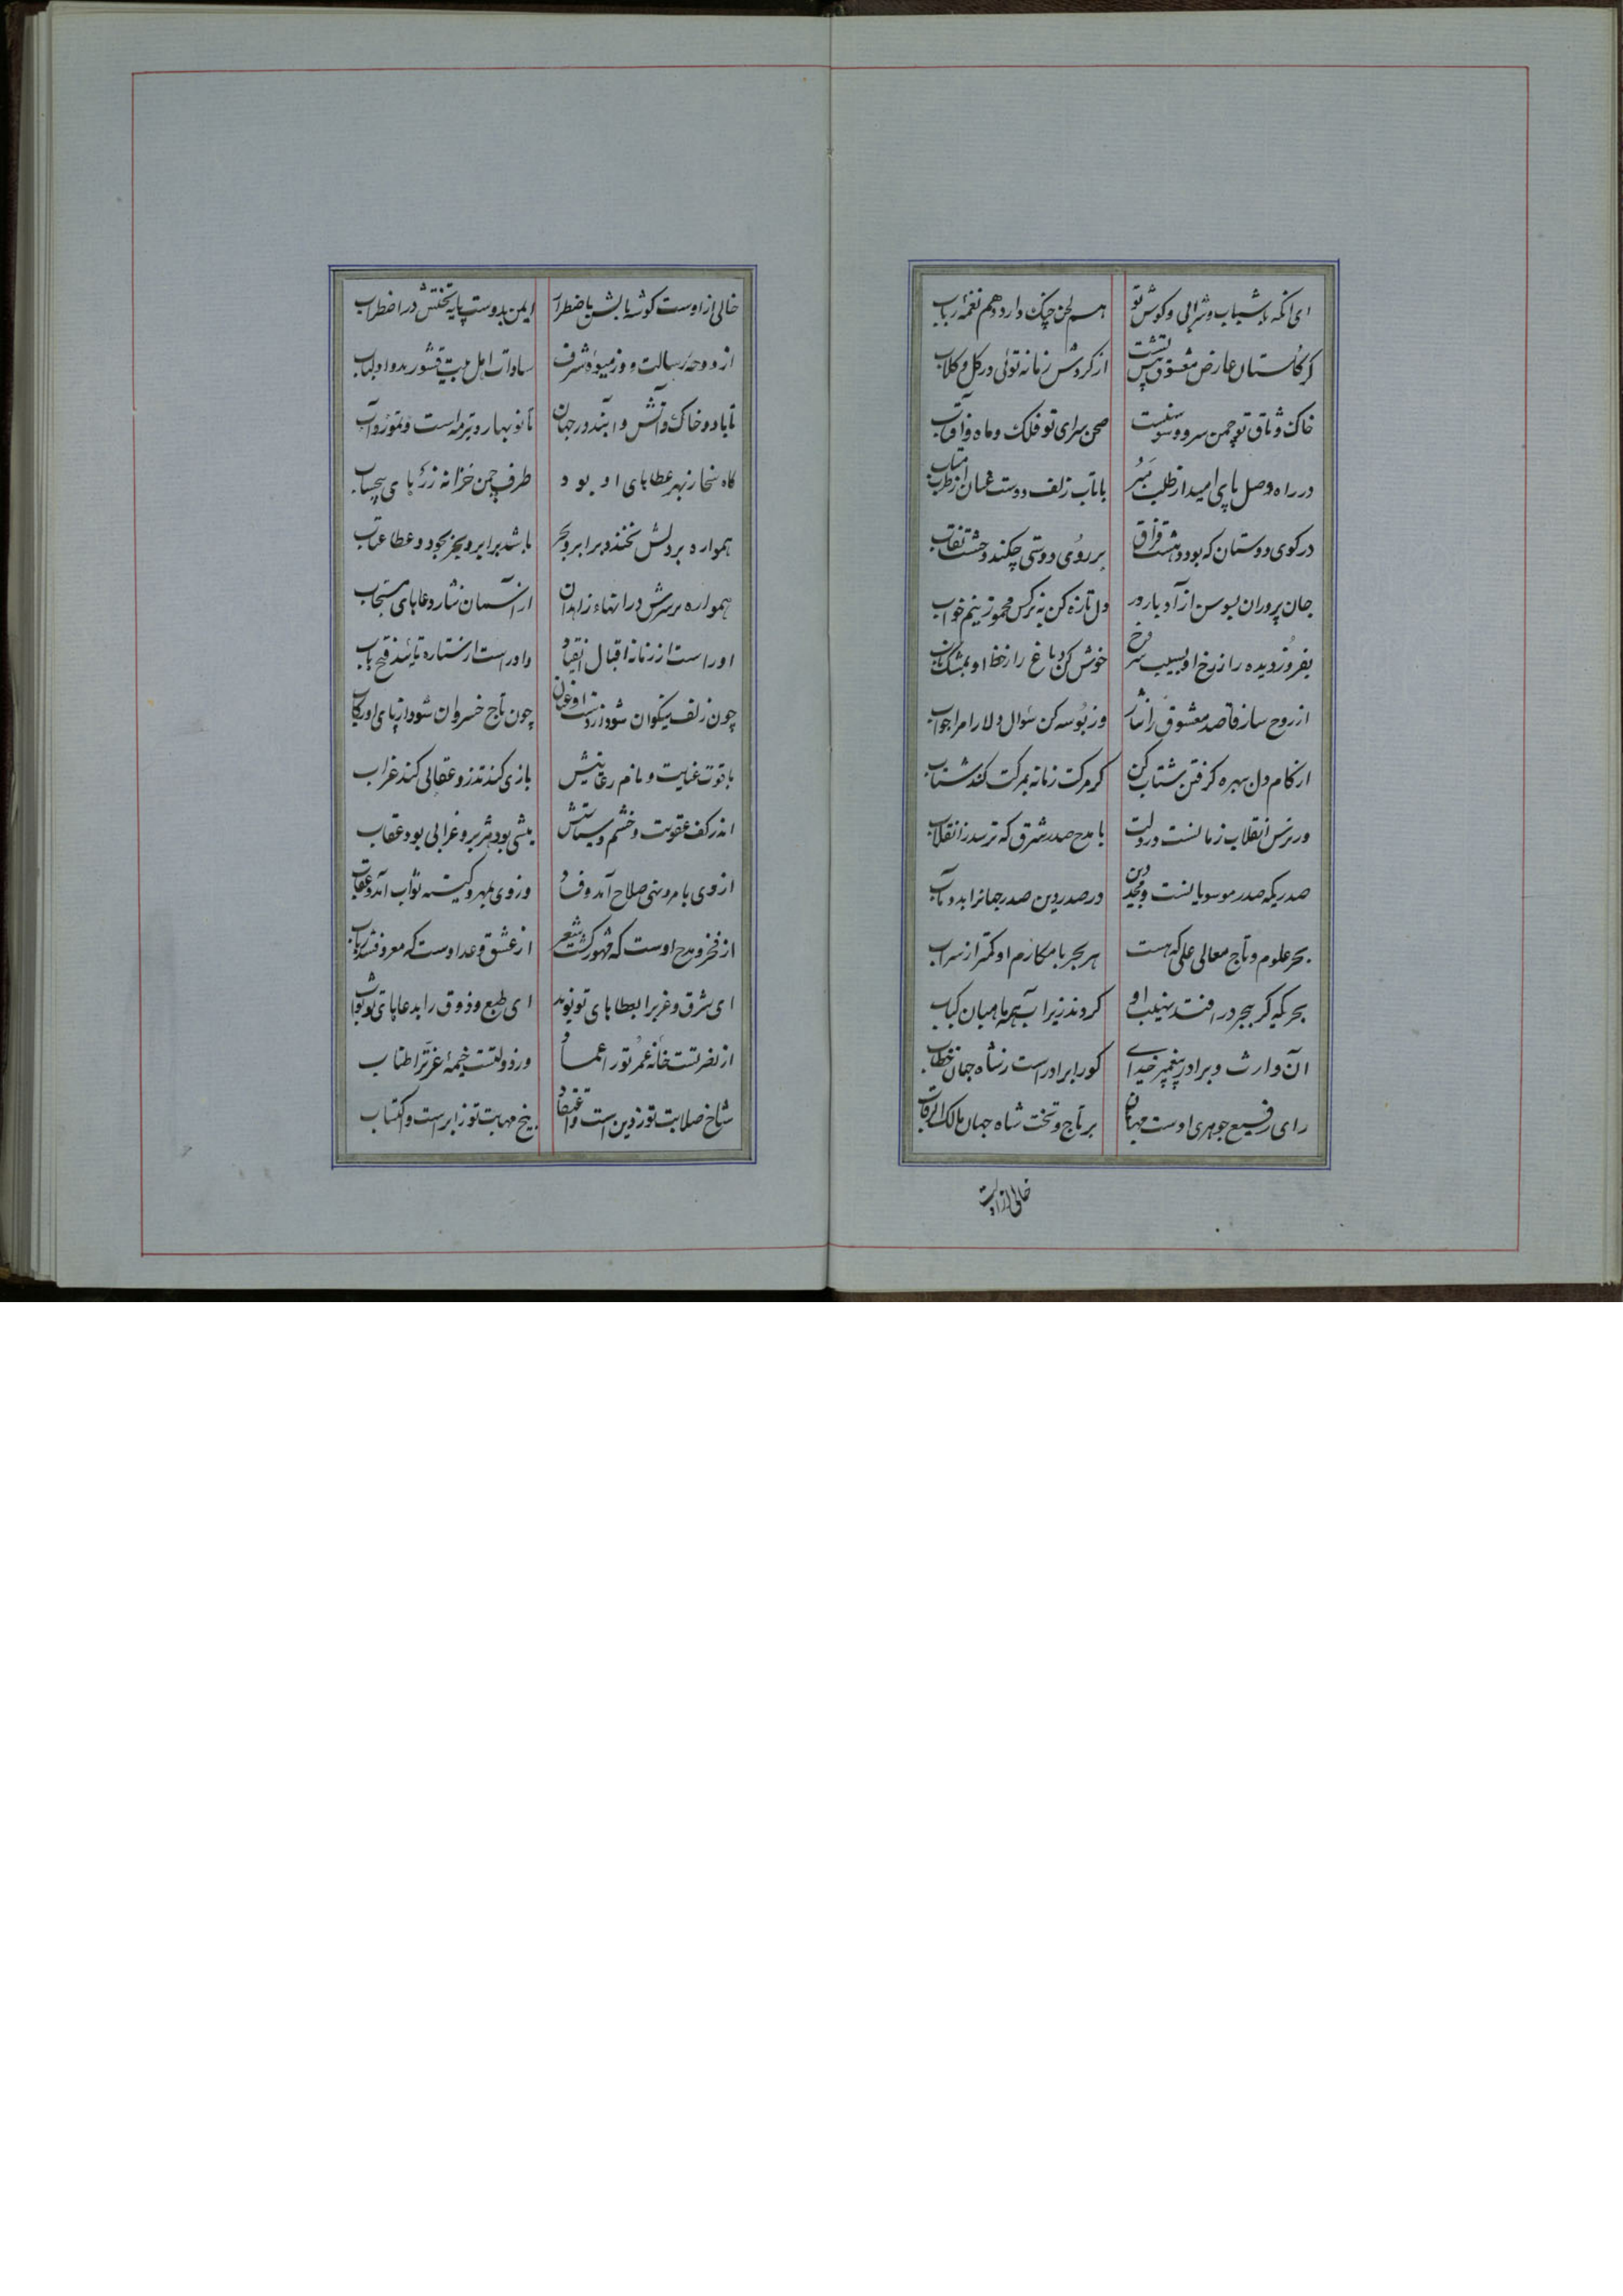 ای آنکه با شباب و شرابی و گوش تو هم لحن چنگ دارد و هم نغمهٔ رباب
کز گلستان عارض معشوق پیش تست از گردش زمانه توئی در گل و گلاب
خاک وثاق تو چمن سرو و سوسنست صحن سرای تو فلک و ماه و آفتاب
در راه وصل پای امید از طلب مبر با تاب زلف دوست عنان از طرب متاب
در کوی دوستان که بود وهشت فراق بر روی دوستی چکند وحشت نقاب
جان پروران بسوسن ازاد بارور دل تازه کن به نرکس مخمور نیم خواب
بفروز دیده را ز رخ او بسیب سرخ خوش کن دماغ را ز خط او بمشک ناب
از روح ساز قاصد معشوق را نثار وز بوسه کن سوال دلارام را جواب
از کام دل بهره گرفتن شتاب کن کز مرکت زمانه بمرکت کند شتاب
ور ترس انقلاب زمانست در دلت با مدح صدر شرق که ترسد ز انقلاب
صدریکه صدر موسویانست و مجد دین در صدر دین صدر جهانرا بدو مآب
بحر علوم و تاج معالی علی که هست هر بحر با مکارم او کمتر از سراب
بحریکه کر ببحر در افتد نهیب او کردند زیر آب همه ماهیان کباب
آن وارث و برادر پیغمبر خدای کورا برادر است ز شاه جهان خطاب
رای رفیع جوهری اوست مهان بر تاج و تخت شاه جهان مالک الرقاب
خالی ازاوست
خالی ازاوست گوشه بالش باضطرار ایمن بدوست پایه تختش در اضطراب
از دوحهٔ رسالت و وز میوهٔ شرف سادات اهل بیت قشور بدو او لباب
تا باد و خاک و آتش و آبند در جهان تا نو بهار و تیر مه است و تموز و آب
گاه سخا ز بهر عطاهای او بود طرف چمن خزانه زرهای بیحساب
همواره بر دلش نخندد بر ابر و بحر باشد بر ابر و بحر بجود و عطا عتاب
همواره بر سرش در انهاء زاهدان از آسمان نثار دعاهای مستجاب
او راست از زمانه اقبال انقیاد و او راست از ستاره تائید فتح باب
چون زلف نیکوان شود از دست او عنان چون تاج خسروان شود از پای او رکاب
با قوت عنایت و با نام رعایتش بازی کند تذرو و عقابی کند غراب
اندر کف عقوبت و خشم و سیاستش میشی بود هژبر و غرابی بود عقاب
از وی بامر و نهی صلاح آمد و فساد وز وی بمهر و کینه ثواب آمد و عقاب
از فخر و مدح اوست که مشهور گشت شعر از عشق وعد اوست که معروف شد رباب
ای شرق و غرب را بعطاهای تو نوید ای طبع و ذوق را بدعاهای تو ثواب
از نصرتست خانه عمر تو را عماد وز دولتست خیمهٔ عز ترا طناب
شاخ صلابت تو ز دین است و اعتقاد بیخ مهابت تو ز ابر است و اکتساب